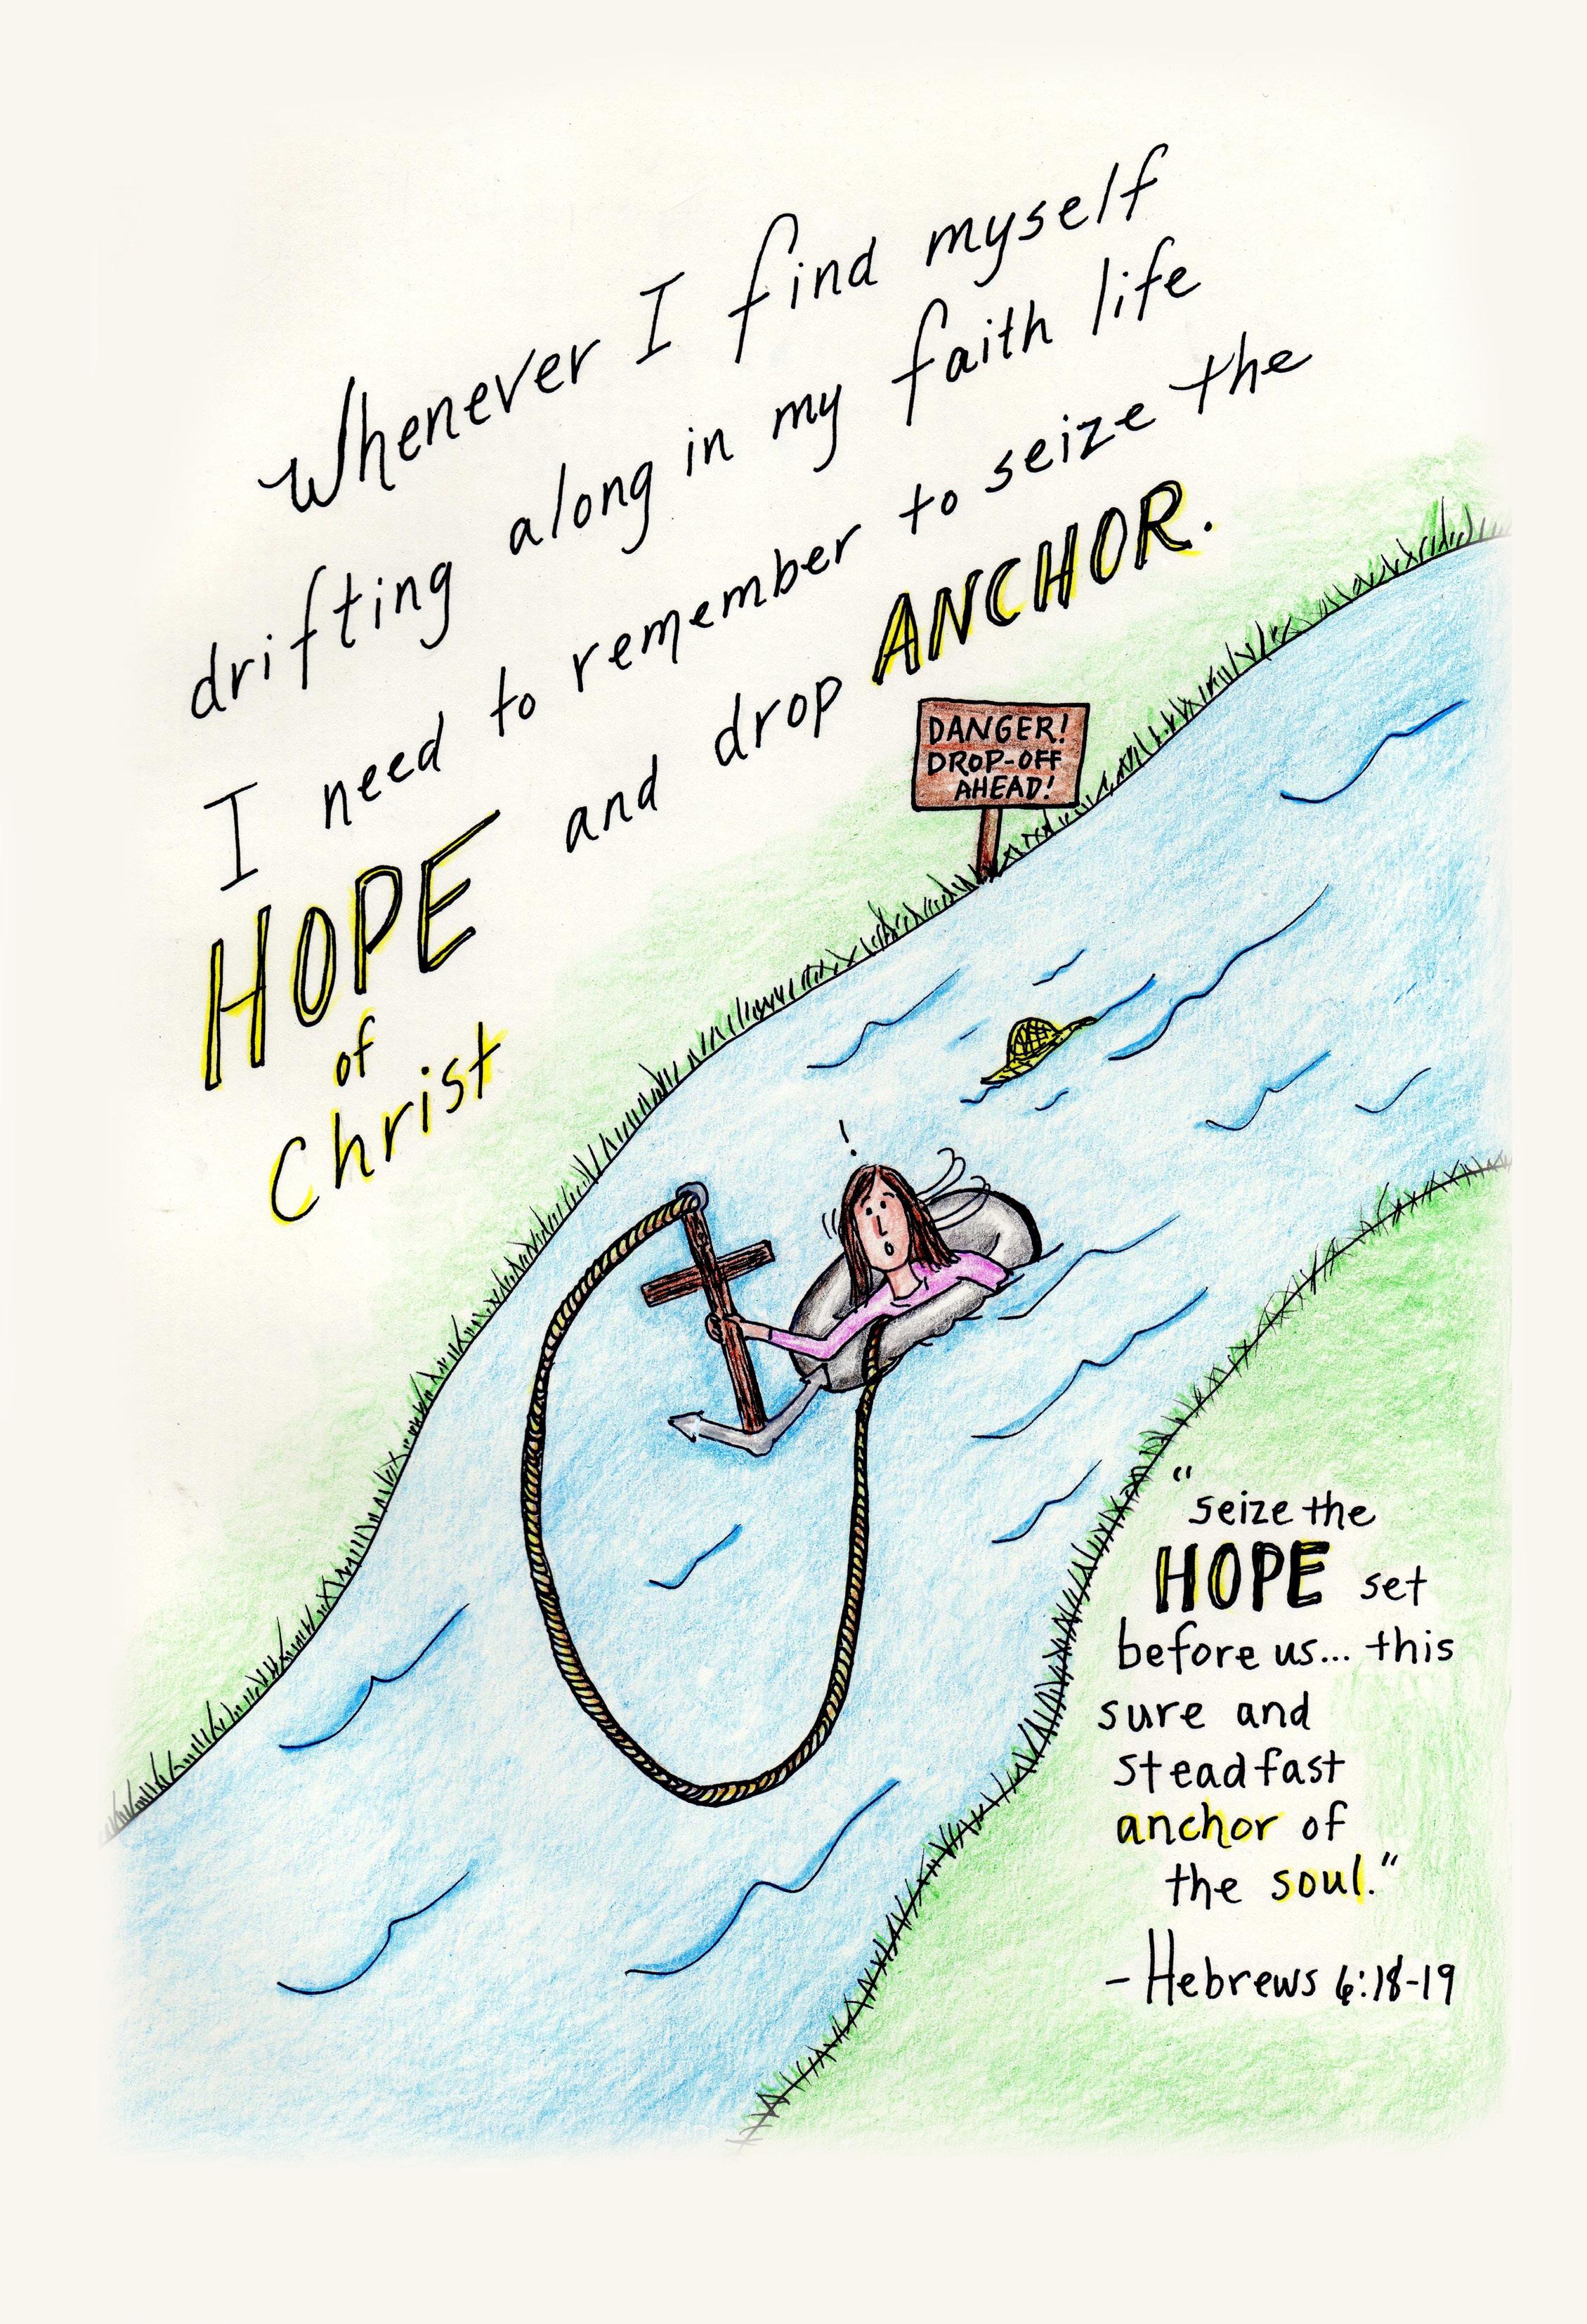 Whenever I find myself
drifting along in my faith life
I need to remember to seize the
HOPE and drop ANCHOR.
of
Christ
DANGER!
DROP-OFF
AHEAD!
!
"seize the
HOPE set
before us... this
sure and
steadfast
anchor of
the soul."
- Hebrews 6:18-19